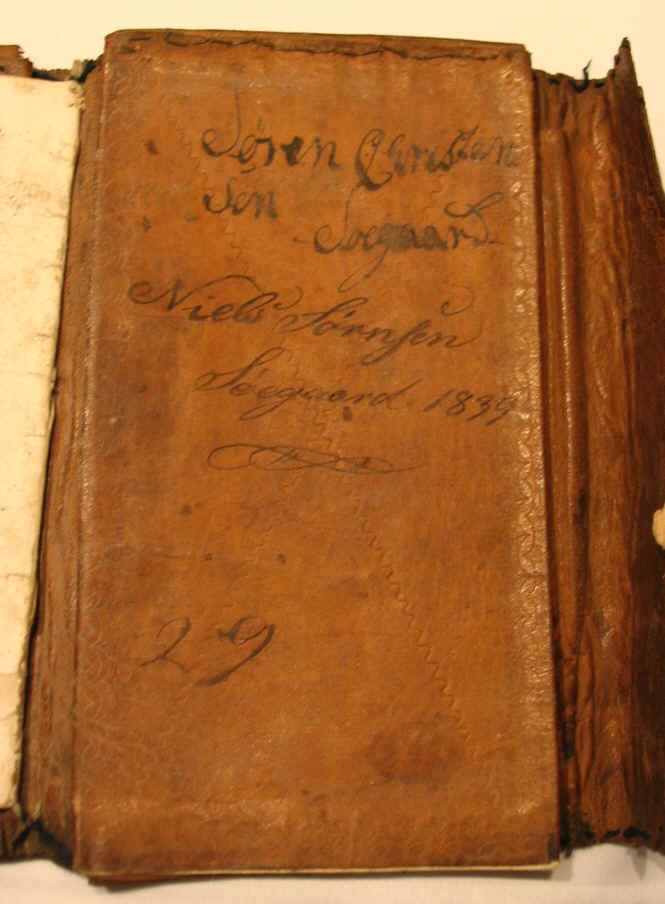 Søren Christen
sen
Soegaard
Niels Sørnsen
Søegaard 1839
29